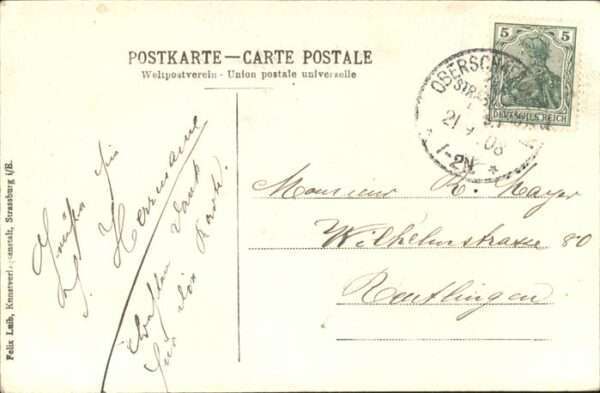 POSTKARTE — CARTE POSTALE
Weltpostverein - Union postale universelle
5 5
DEUTSCHES REICH
OBERSCH
STRASS
21 9 08
1-2N *
Monsieur R. Mayer
Wilhelmstrasse 80
Reutlingen
Herrmann
Besten Dank
für die Karte.
Felix Luib, Kunstverlagsanstalt, Strassburg i/E.